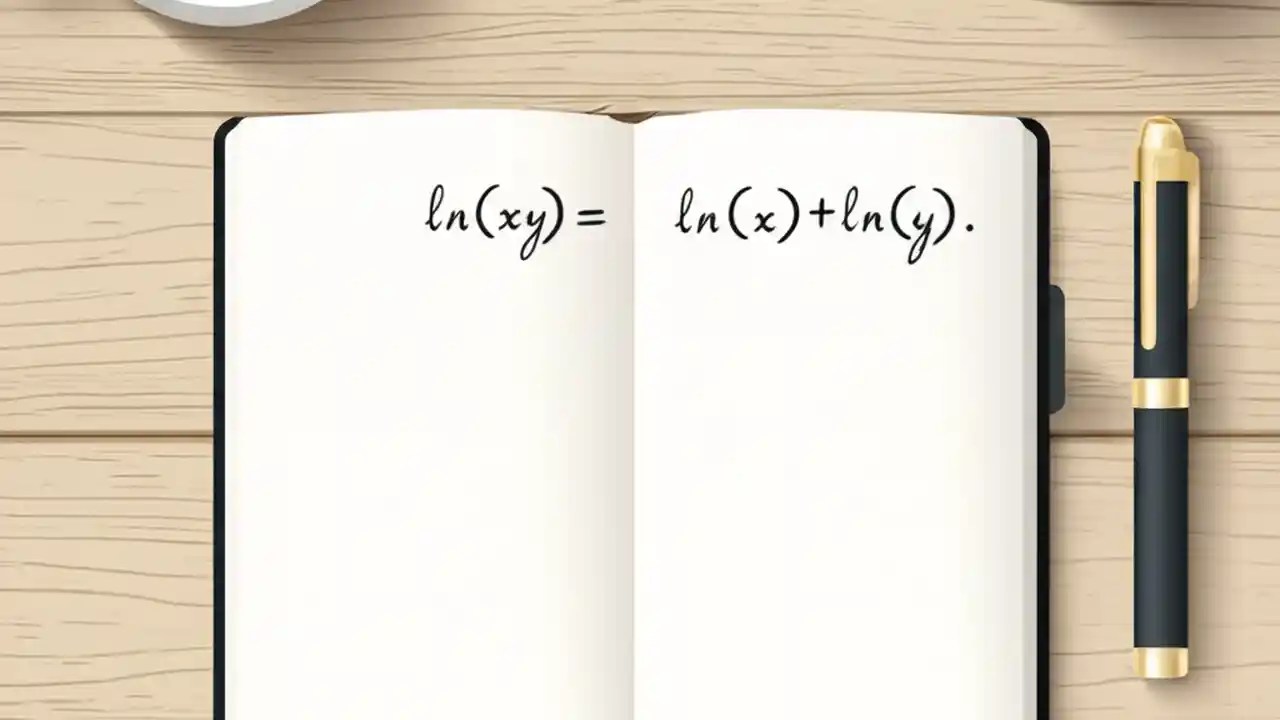 ln(xy) = ln(x)+ln(y).